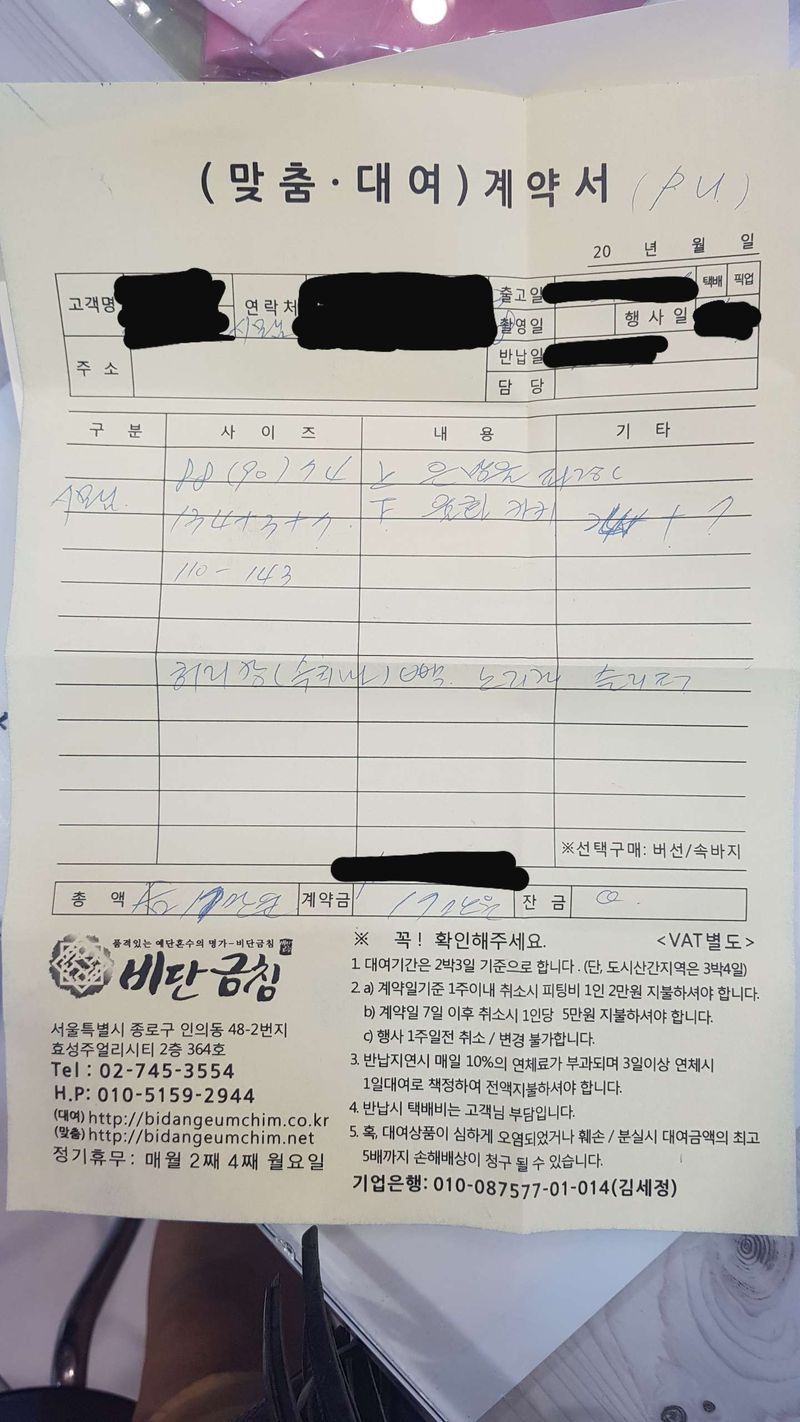 (맞춤·대여) 계약서 (P U)
20 년 월 일
고객명 연락처 출고일 택배 픽업
시모님 촬영일 행사일
주소 반납일
담당
구분 사이즈 내용 기타
88 (90) 74
시모님 134+3+5
110 - 143
허리장 (속치마) 백. 노리개
※선택구매: 버선/속바지
총액 계약금 17만원 잔금 0
품격있는 예단혼수의 명가-비단금침
비단금침
서울특별시 종로구 인의동 48-2번지
효성주얼리시티 2층 364호
Tel : 02-745-3554
H.P: 010-5159-2944
(대여) http://bidangeumchim.co.kr
(맞춤) http://bidangeumchim.net
정기휴무: 매월 2째 4째 월요일
※ 꼭! 확인해주세요. <VAT별도>
1. 대여기간은 2박3일 기준으로 합니다. (단, 도시산간지역은 3박4일)
2. a) 계약일기준 1주이내 취소시 피팅비 1인 2만원 지불하셔야 합니다.
b) 계약일 7일 이후 취소시 1인당 5만원 지불하셔야 합니다.
c) 행사 1주일전 취소 / 변경 불가합니다.
3. 반납지연시 매일 10%의 연체료가 부과되며 3일이상 연체시
1일대여로 책정하여 전액지불하셔야 합니다.
4. 반납시 택배비는 고객님 부담입니다.
5. 혹, 대여상품이 심하게 오염되었거나 훼손 / 분실시 대여금액의 최고
5배까지 손해배상이 청구 될 수 있습니다.
기업은행: 010-087577-01-014(김세정)